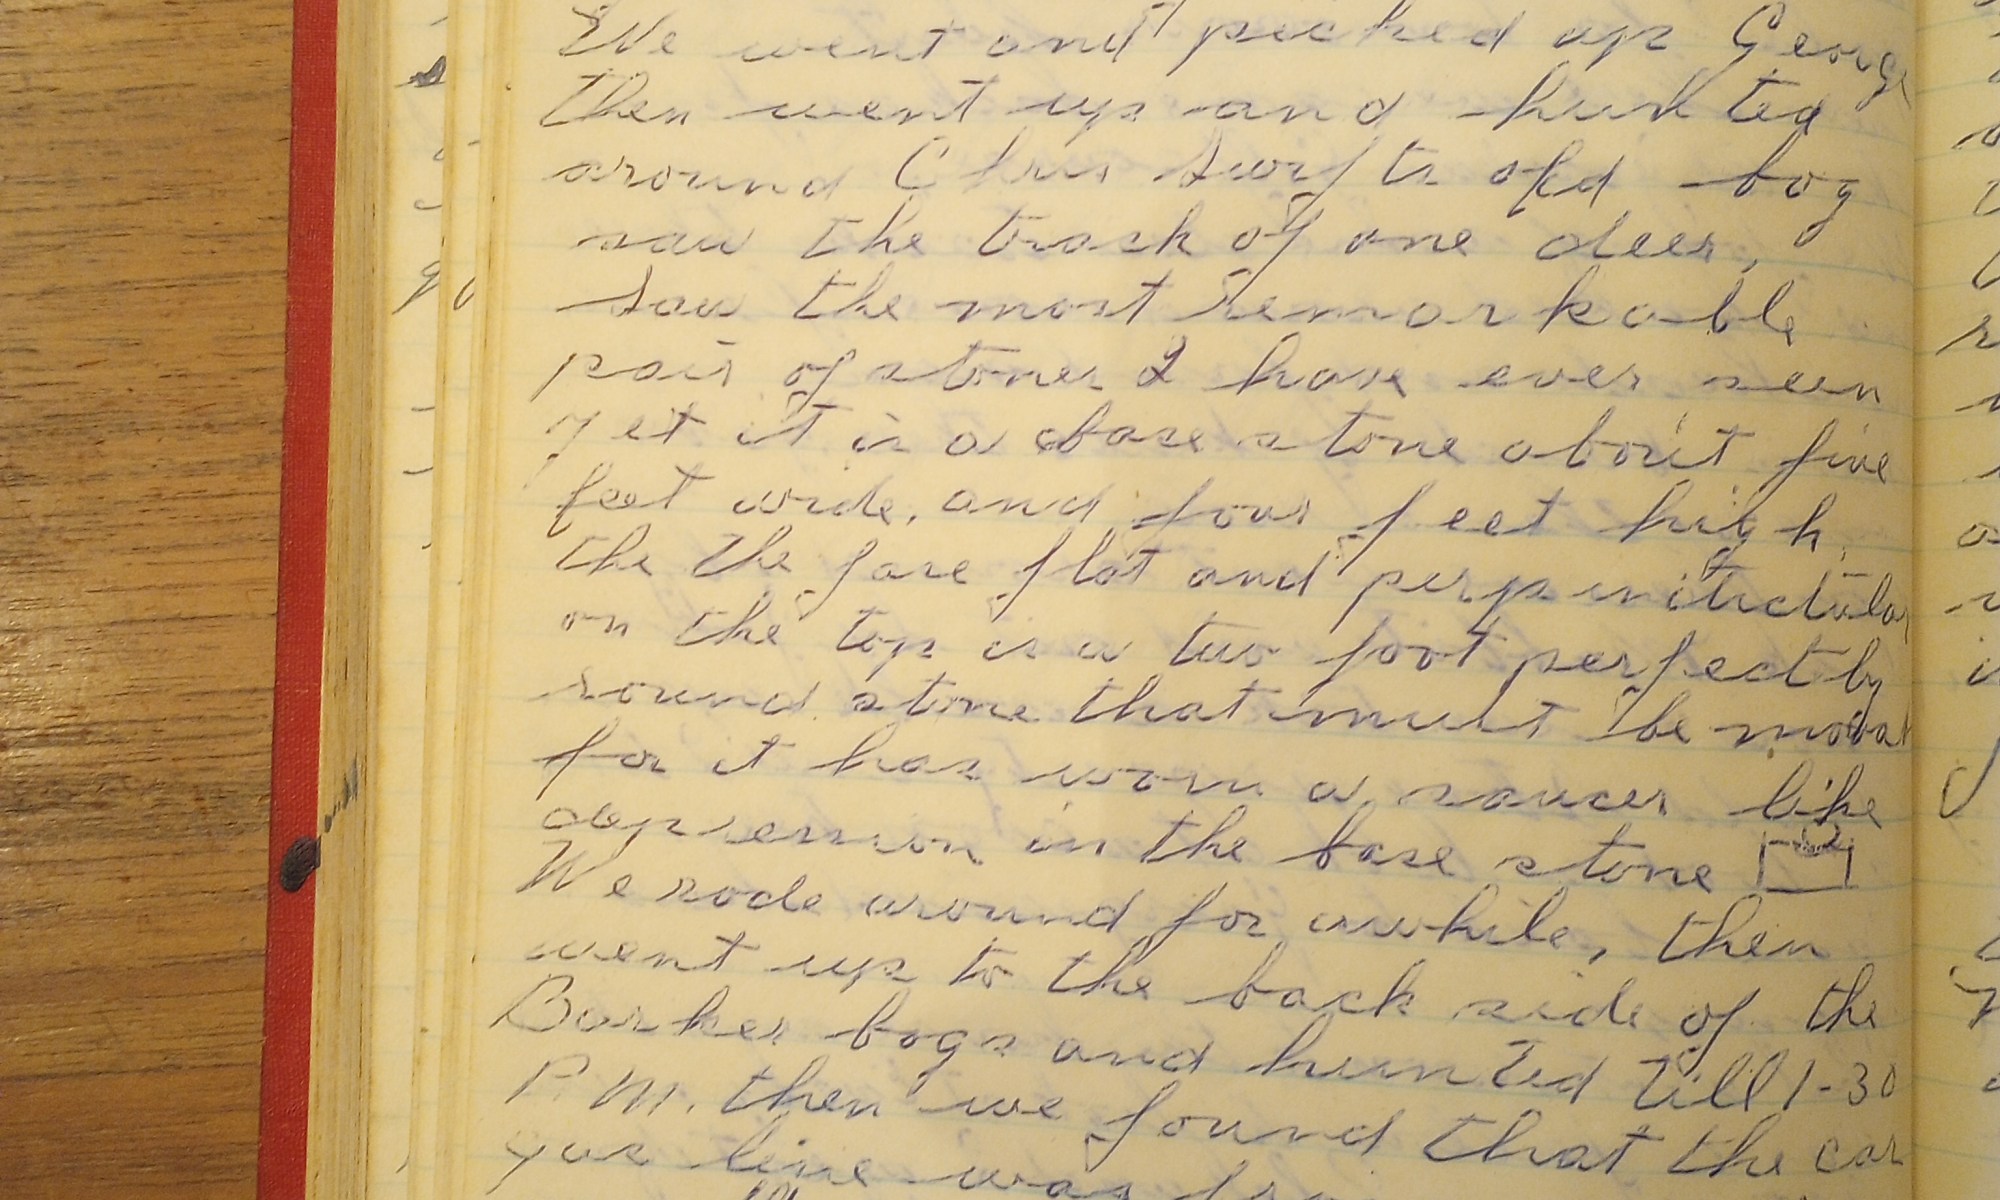 We went and picked up George
then went up and hunted
around Chris Swifts old bog
saw the track of one deer,
Saw the most remarkable
pair of stones I have ever seen
yet it is a base stone about five
feet wide, and four feet high,
the the face flat and
on the top is a two foot perfectby
round stone that must be
for it has worn a saucer like
depression in the base stone
We rode around for awhile, then
went up to the back side of the
Barker bogs and hunted till 1-30
P.M. then we found that the car
gas line was